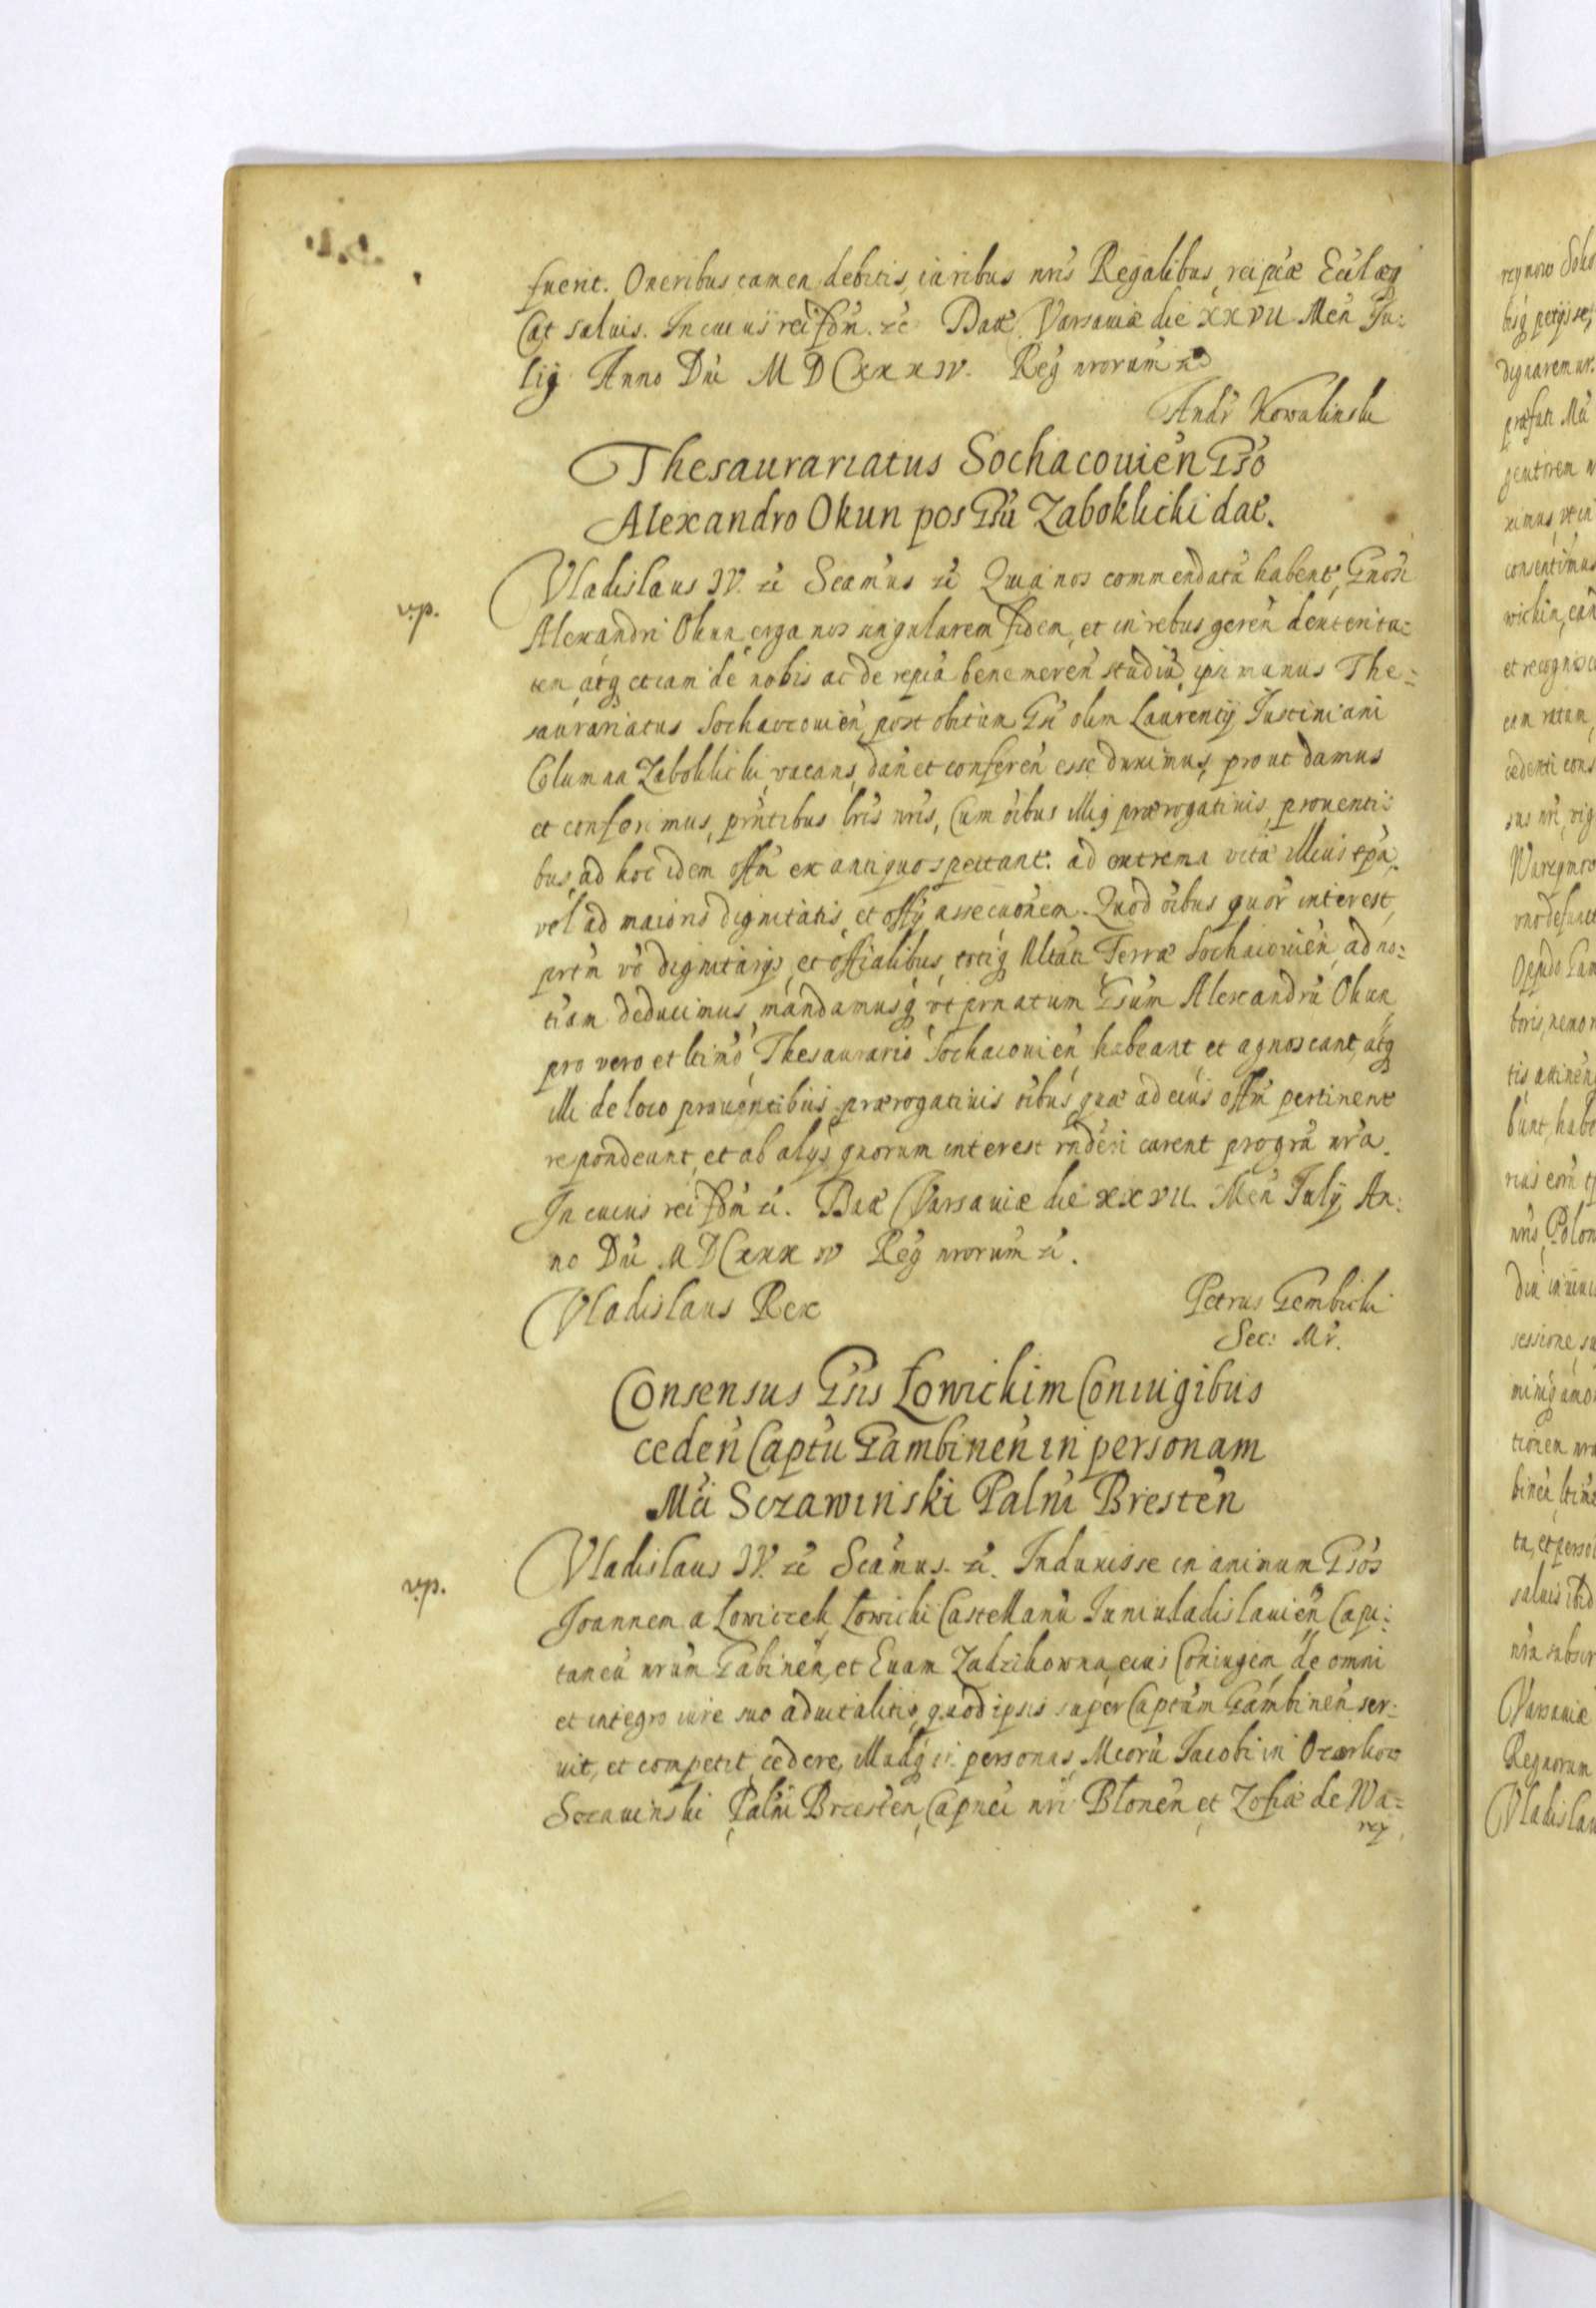 fuerit. Oneribus tamen debitis, iuribus nris Regalibus, reipcæ Ecclæq
Cat saluis. In cuius rei fidm. zc Dat Varsauiæ die XXVII Men Ju:
lij Anno Dni MDCXXXIV. Reg nrorum zc
Andr Kowalinski
Thesaurariatus Sochacouien Gso
Alexandro Okun pos Gsu Zaboklicki dat.
v.p.
Vladislaus IV. zc Scamus zc Quia nos commendatu habent, Gnosi
Alexandri Okun erga nos singularem fidem, et in rebus geren dexterita:
tem atq etiam de nobis ac de repca benemeren studiu, ipsi munus The:
saurariatus Sochaccouien, post obitum Gsi olim Laurentij Justiniani
Columna Zaboklicki, vacans, dan et conferen esse duximus, pro ut damus
et conferimus, prntibus lris nris, Cum oibus illiq prærogatiuis, prouenti:
bus ad hoc idem offm ex antiquo spectant. ad extrema vitæ illius tpa,
vel ad maioris dignitatis, et offij assecuonem. Quod oibus quor interest,
prtm vo dignitarijs, et officialibus, totiq Nltati Terræ Sochacouien, ad no:
tiam deducimus, mandamusq vt prnatum Gsum Alexandru Okun
pro vero et ltimo Thesaurario Sochacouien habeant et agnoscant, atq
illi de loco prouentibus prærogatiuis oibus quæ ad eius offm pertinent
respondeant, et ab alijs quorum interest rnderi curent pro gra nra.
In cuius rei fdm zc. Dat Varsauiæ die XXVII. Men Julij An:
no Dni MDCXXXIV Reg nrorum zc.
Vladislaus Rex
Petrus Gembicki
Sec: Mr.
Consensus Gsis Łowickim Coniugibus
ceden Captu Gambinen in personam
Mci Sczawinski Palni Bresten
v.p.
Vladislaus IV. zc Scamus. zc. Induxisse in animum Gsos
Joannem a Łowiczek Łowicki Castellanu Juniuladislauien Capi:
taneu nrum Gabinen, et Euam Zadzikowna, eius Coniugem, de omni
et integro iure suo aduitalitio, quod ipsis super Captum Gambinen ser:
uit, et competit, cedere, illudq in personas, Mcoru Jacobi in Ozorkow
Sczawinski Palni Brzesten, Capnei nri Blonen et Zofiæ de Wa:
rcy